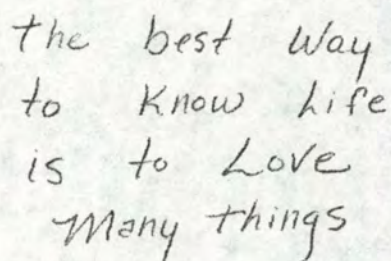 the best Way
to Know Life
is to Love
Many things